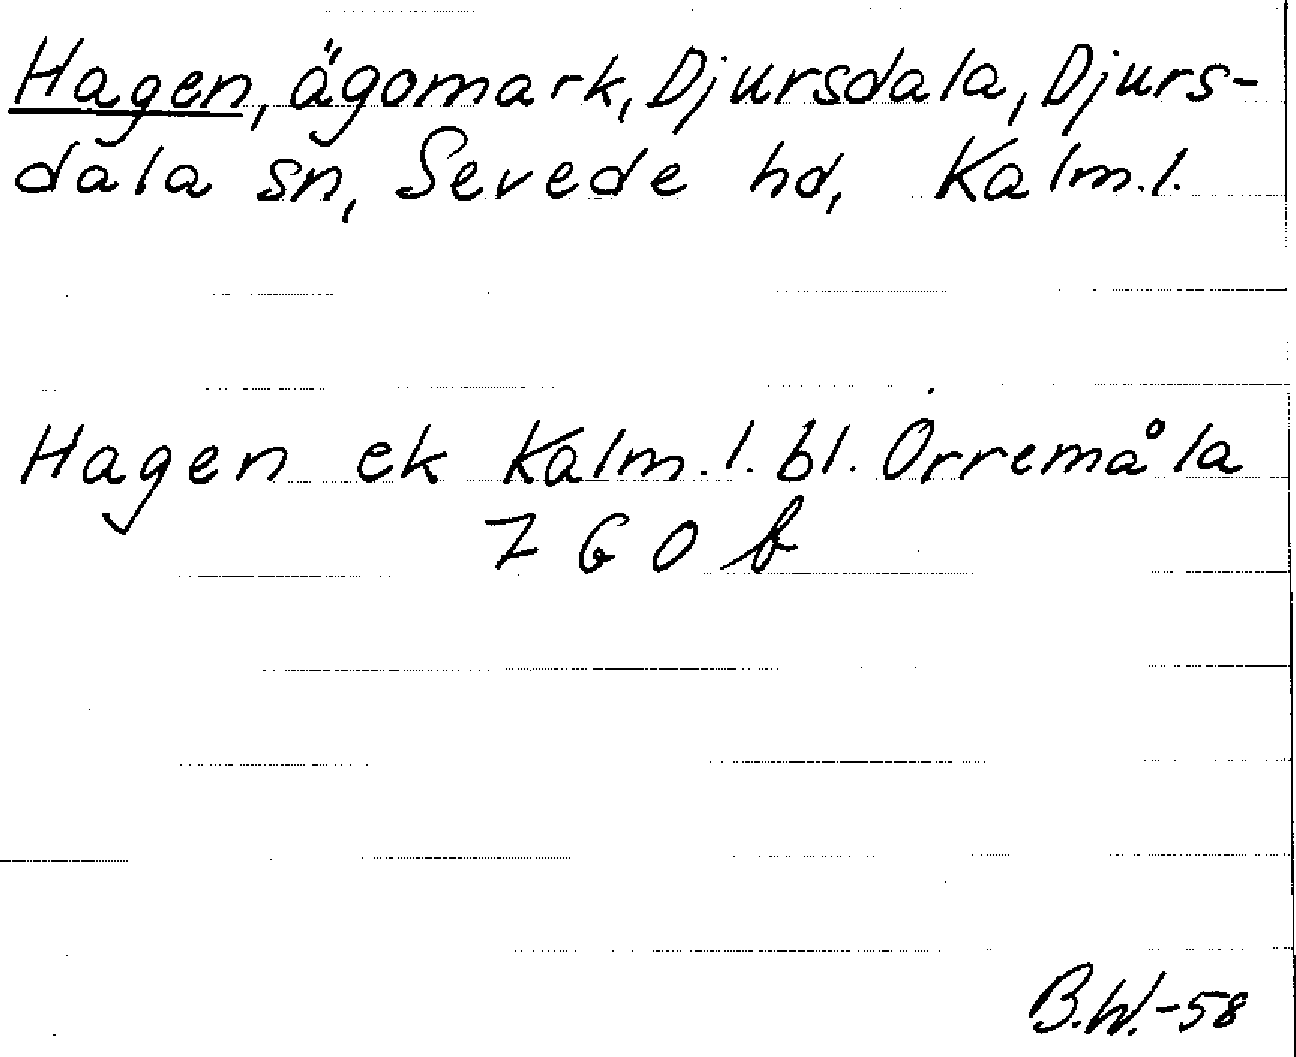 Hagen, ägomark, Djursdala, Djurs-
dala sn, Sevede hd, Kalm.l.
Hagen ek Kalm.l. bl. Orremåla
7 G O b
B.W.-58